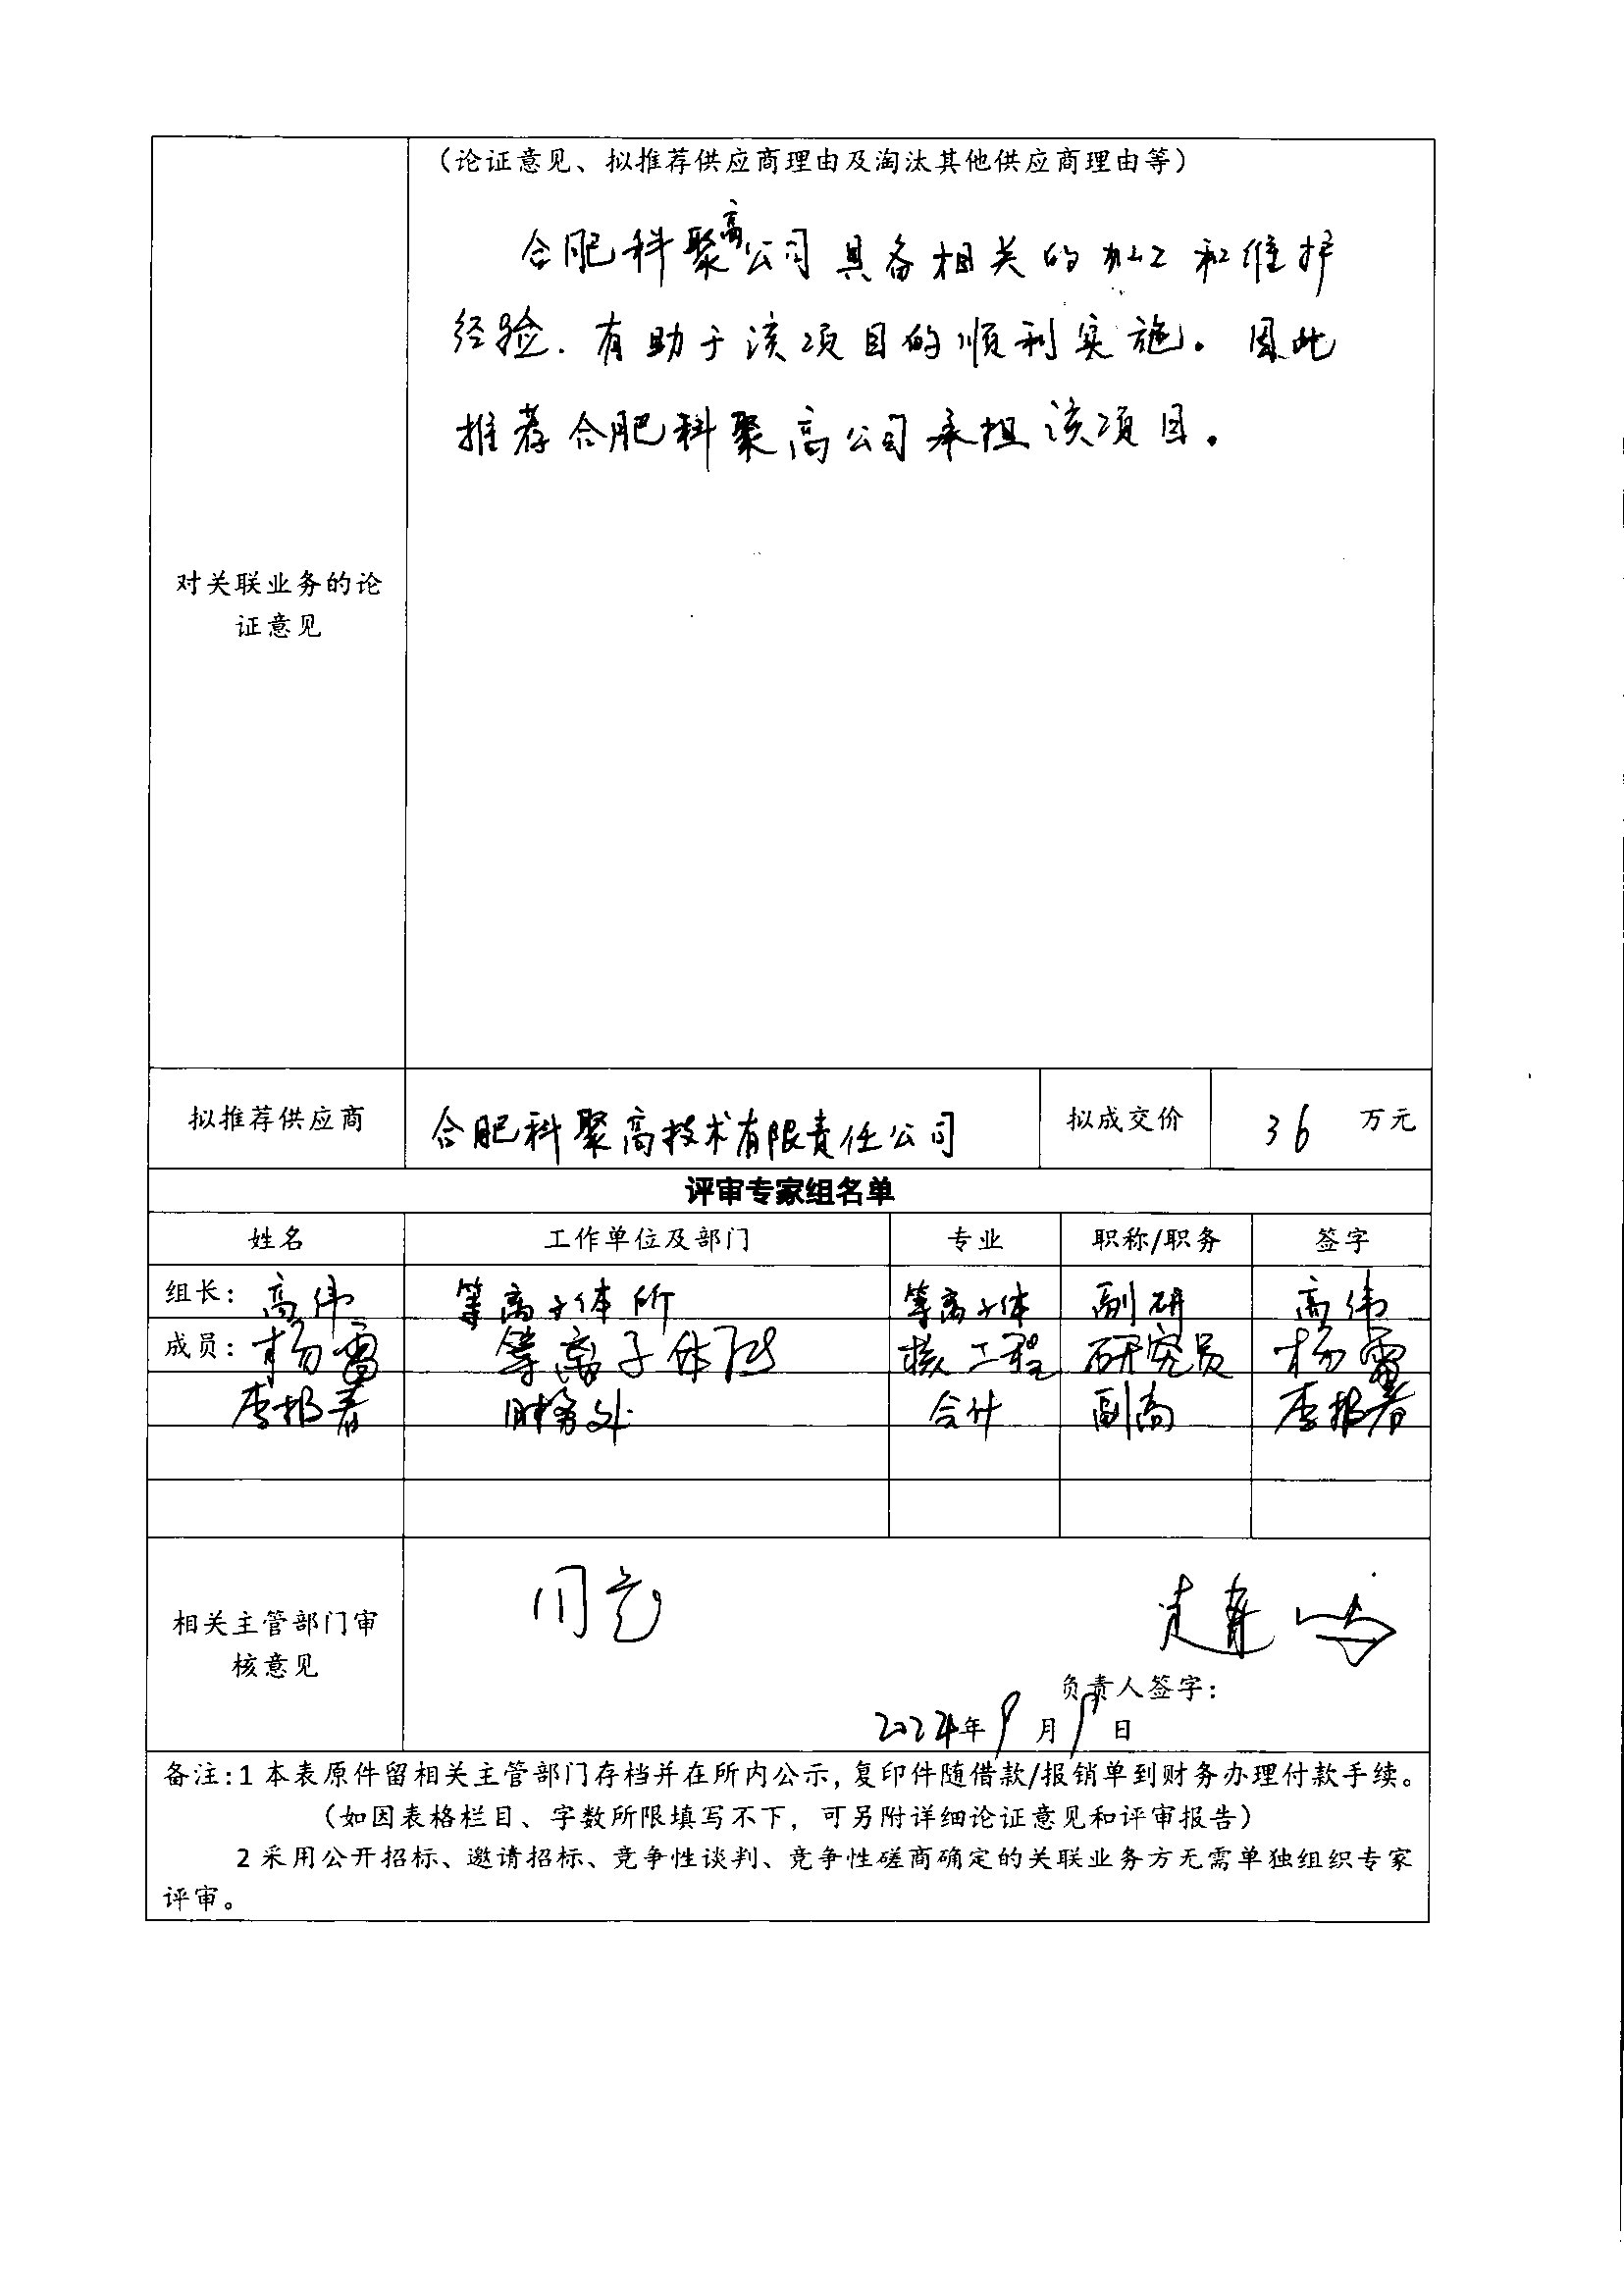 （论证意见、拟推荐供应商理由及淘汰其他供应商理由等）
合肥科聚高公司具备相关的加工和维护
经验.有助于该项目的顺利实施。因此
推荐合肥科聚高公司承担该项目。
对关联业务的论
证意见
拟推荐供应商 合肥科聚高技术有限责任公司 拟成交价 36 万元
评审专家组名单
姓名 工作单位及部门 专业 职称/职务 签字
组长：高伟 等离子体所 等离子体 副研 高伟
成员：杨雷 等离子体所 核工程 研究员 杨雷
李报春 财务处 会计 副高 李报春
同意
相关主管部门审
核意见
负责人签字：
2024年9月9日
备注：1 本表原件留相关主管部门存档并在所内公示，复印件随借款/报销单到财务办理付款手续。
（如因表格栏目、字数所限填写不下，可另附详细论证意见和评审报告）
2 采用公开招标、邀请招标、竞争性谈判、竞争性磋商确定的关联业务方无需单独组织专家
评审。